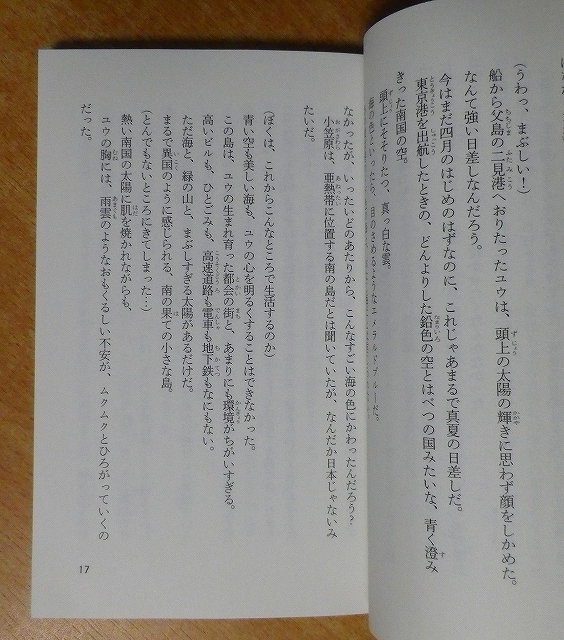 (うわっ、まぶしい!)
船から父島の二見港へおりたったユウは、頭上の太陽の輝きに思わず顔をしかめた。
なんて強い日差しなんだろう。
今はまだ四月のはじめのはずなのに、これじゃあまるで真夏の日差しだ。
東京港を出航したときの、どんよりした鉛色の空とは、べつの国みたいな、青く澄み
きった南国の空。
頭上にそそりたつ、真っ白な雲。
海の色といったら、目のさめるようなエメラルドブルーだ。
なかったが、いったいどのあたりから、こんなすごい海の色にかわったんだろう?
小笠原は、亜熱帯に位置する南の島だとは聞いていたが、なんだか日本じゃないみ
たいだ。
(ぼくは、これからこんなところで生活するのか)
青い空も美しい海も、ユウの心を明るくすることはできなかった。
この島は、ユウの生まれ育った都会の街と、あまりにも環境がちがいすぎる。
高いビルも、ひとごみも、高速道路も電車も地下鉄もなにもない。
ただ海と、緑の山と、まぶしすぎる太陽があるだけだ。
まるで異国のように感じられる、南の果ての小さな島。
(とんでもないところにきてしまった…)
熱い南国の太陽に肌を焼かれながらも、
ユウの胸には、雨雲のようなおもくるしい不安が、ムクムクとひろがっていくの
だった。
17